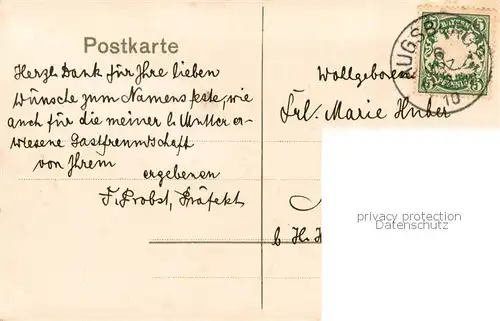 Postkarte
Herzl. Dank für Ihre lieben
Wünsche zum Namensfeste, wie
auch für die meiner l. Mutter er-
wiesene Gastfreundschaft
von Ihrem
ergebenen
F. Probst, Präfekt
AUGSB
10
BAYERN
5 5
PFENNIG
Wollgeboren
Frl. Marie Huber
b H. H
privacy protection
Datenschutz